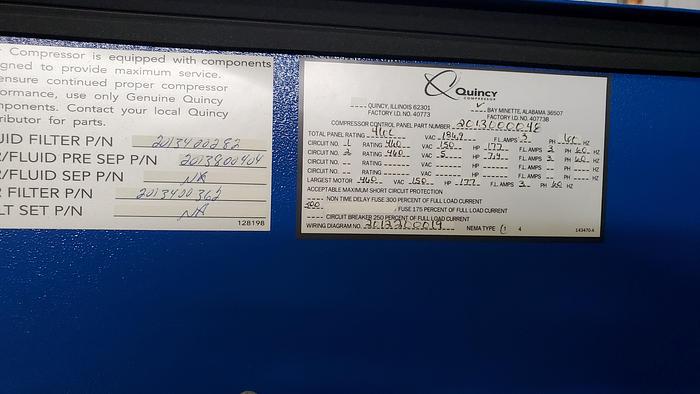 Compressor is equipped with components
gned to provide maximum service.
ensure continued proper compressor
ormance, use only Genuine Quincy
mponents. Contact your local Quincy
ributor for parts.
UID FILTER P/N 2013400282
R/FLUID PRE SEP P/N 2013800404
R/FLUID SEP P/N NA
R FILTER P/N 2013400362
LT SET P/N NA
128198
Quincy
COMPRESSOR
QUINCY, ILLINOIS 62301
FACTORY I.D. NO. 40773
✓ BAY MINETTE, ALABAMA 36507
FACTORY I.D. NO. 40773B
COMPRESSOR CONTROL PANEL PART NUMBER 2013600048
TOTAL PANEL RATING 460 VAC 196.9 F.L. AMPS 3 PH 60 HZ
CIRCUIT NO. 1 RATING 460 VAC 150 HP 177 F.L. AMPS 3 PH 60 HZ
CIRCUIT NO. 2 RATING 460 VAC 5 HP 7.4 F.L. AMPS 3 PH 60 HZ
CIRCUIT NO. RATING VAC HP F.L. AMPS PH HZ
CIRCUIT NO. RATING VAC HP F.L. AMPS PH HZ
LARGEST MOTOR 460 VAC 150 HP 177 F.L. AMPS 3 PH 60 HZ
ACCEPTABLE MAXIMUM SHORT CIRCUIT PROTECTION
NON TIME DELAY FUSE 300 PERCENT OF FULL LOAD CURRENT
300 FUSE 175 PERCENT OF FULL LOAD CURRENT
CIRCUIT BREAKER 250 PERCENT OF FULL LOAD CURRENT
WIRING DIAGRAM NO. 2012200019 NEMA TYPE 1 4
143470-A